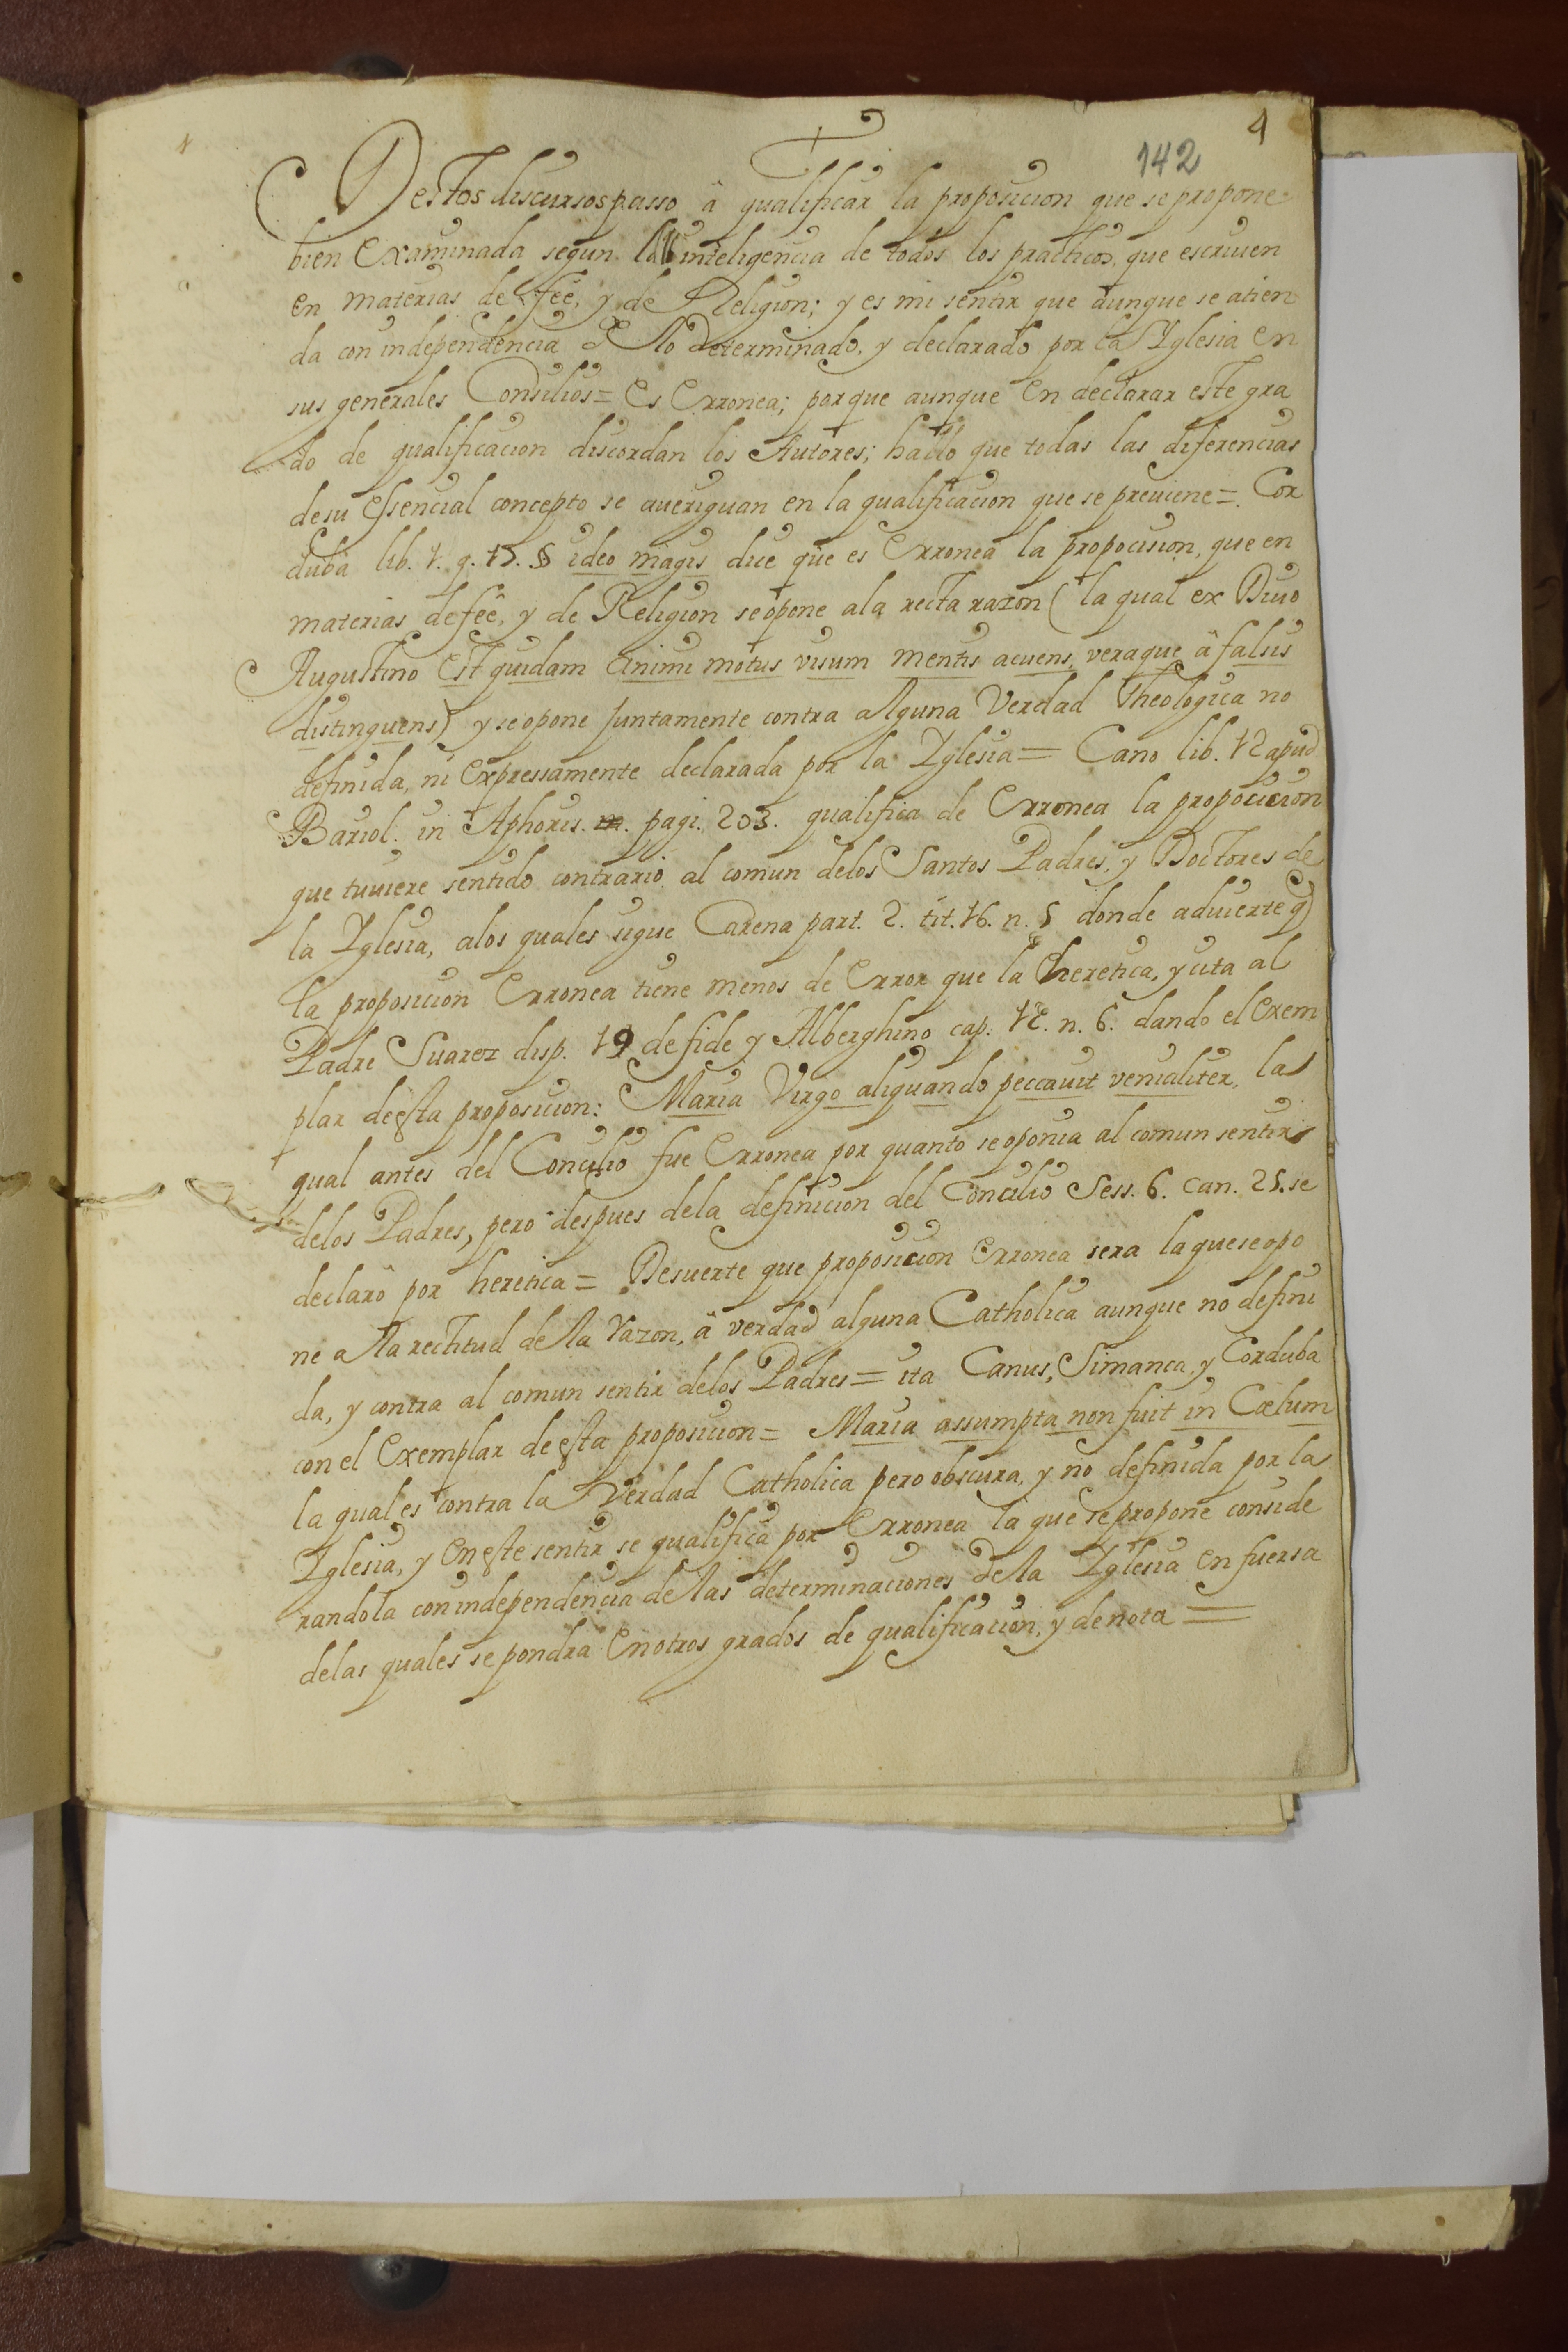 4
142
Destos discursos passo â qualificar la proposicion que se propone
bien Examinada segun la inteligencia de todos los practicos, que escriuen
en materias de feê, y de Religion; y es mi sentir que aunque se atien
da con independencia de lo determinado, y declarado por la Yglesia en
sus generales Consilios = Es Erronea; porque aunque en declarar este gra
do de qualificacion discordan los Autores; hallo que todas las diferencias
de su essencial concepto se aueriguan en la qualificacion que se preuiene = Cor
duba lib. 1. q. 17. § ideo magis dice que es Erronea la propocision, que en
materias de feê, y de Religion se opone a la recta razon (la qual ex Diuo
Augustino Est quidam animi motus visum mentis acuens, veraque â falsis
distinguens) y se opone juntamente contra alguna Verdad Theologica no
definida, ni Expressamente declarada por la Yglesia = Cano lib. 12 apud
Bariol. in Aphoris. pagi. 203. qualifica de Erronea la propocicion
que tuuiere sentido contrario al comun de los Santos Padres, y Doctores de
la Yglesia, a los quales sigue Carena part. 2. tit. 16. n. 5 donde aduierte q
la proposicion Erronea tiene menos de Error que la heretica, y cita al
Padre Suarez disp. 19 de fide y Alberghino cap. 12. n. 6. dando el Exem
plar de esta proposicion: Maria Virgo aliquando peccauit venialiter, la
qual antes del Concilio fue Erronea por quanto se oponia al comun sentir
de los Padres, pero despues de la definicion del Concilio Sess. 6. can. 25. se
declarô por heretica = Desuerte que proposicion Erronea sera la que se opo
ne a la rectitud de la razon, â verdad alguna Catholica aunque no defini
da, y contra al comun sentir de los Padres = ita Canus, Simanca, y Corduba
con el Exemplar de esta proposicion = Maria assumpta non fuit in Cœlum
la qual es contra la Verdad Catholica pero obscura, y no definida por la
Yglesia, y en este sentir se qualifica por Erronea la que se propone conside
randola con independencia de las determinaciones de la Yglesia en fuersa
de las quales se pondra en otros grados de qualificacion, y de nota =